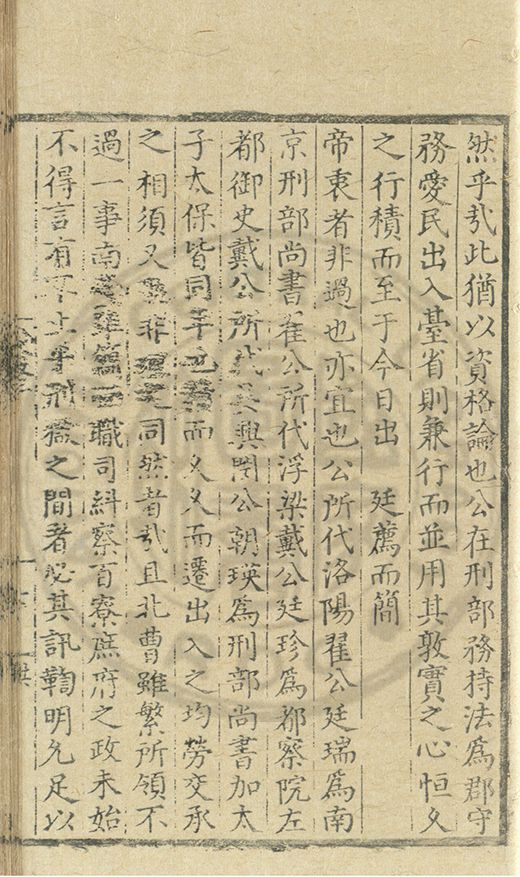 然乎㢤此猶以資格論也公在刑部務持法爲郡守
務愛民出入臺省則兼行而並用其敦實之心恒久
之行積而至于今日出 廷薦而簡
帝衷者非過也亦宜也公所代洛陽翟公廷瑞爲南
京刑部尚書翟公所代浮梁戴公廷珍爲都察院左
都御史戴公所代吳興閔公朝瑛爲刑部尚書加太
子太保皆同年也 而久久而遷出入之均勞交承
之相須又 非 司然者㢤且北曹雖繁所領不
過一事南 職司糾察百寮庶府之政未始
不得言有不 事刑獄之間者必其訊鞫明允足以